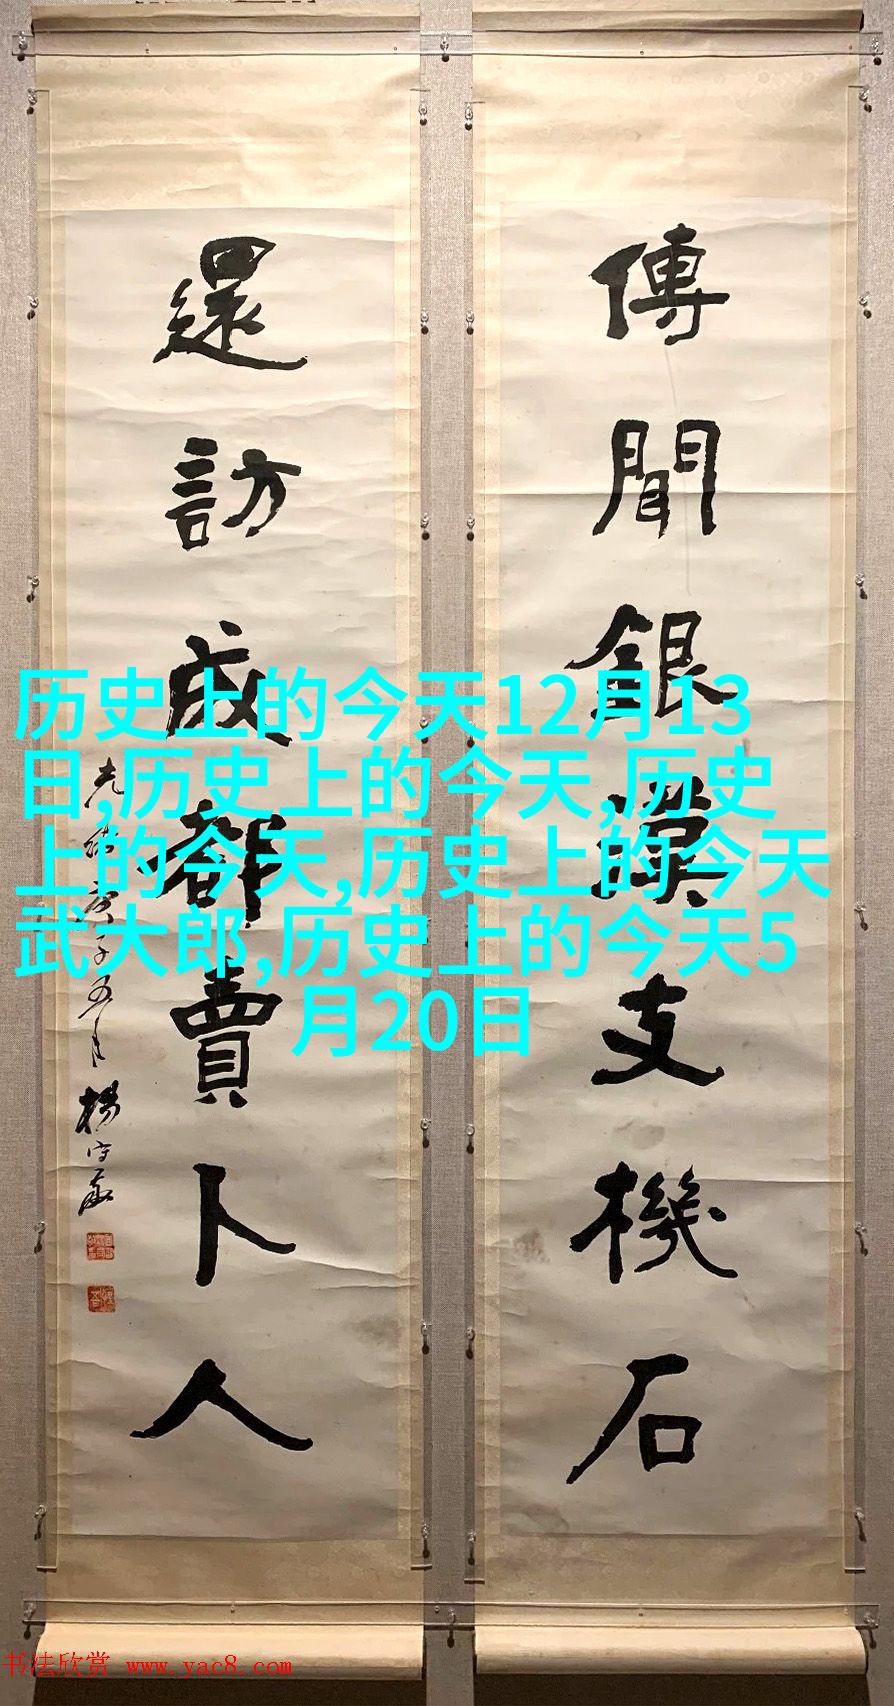 傳聞銀漢支機石
還訪成都賣卜人
光緒庚子五月楊守敬
历史上的今天12月13
日,历史上的今天,历史
上的今天,历史上的今天
武大郎,历史上的今天5
月20日
书法欣赏 www.yac8.com